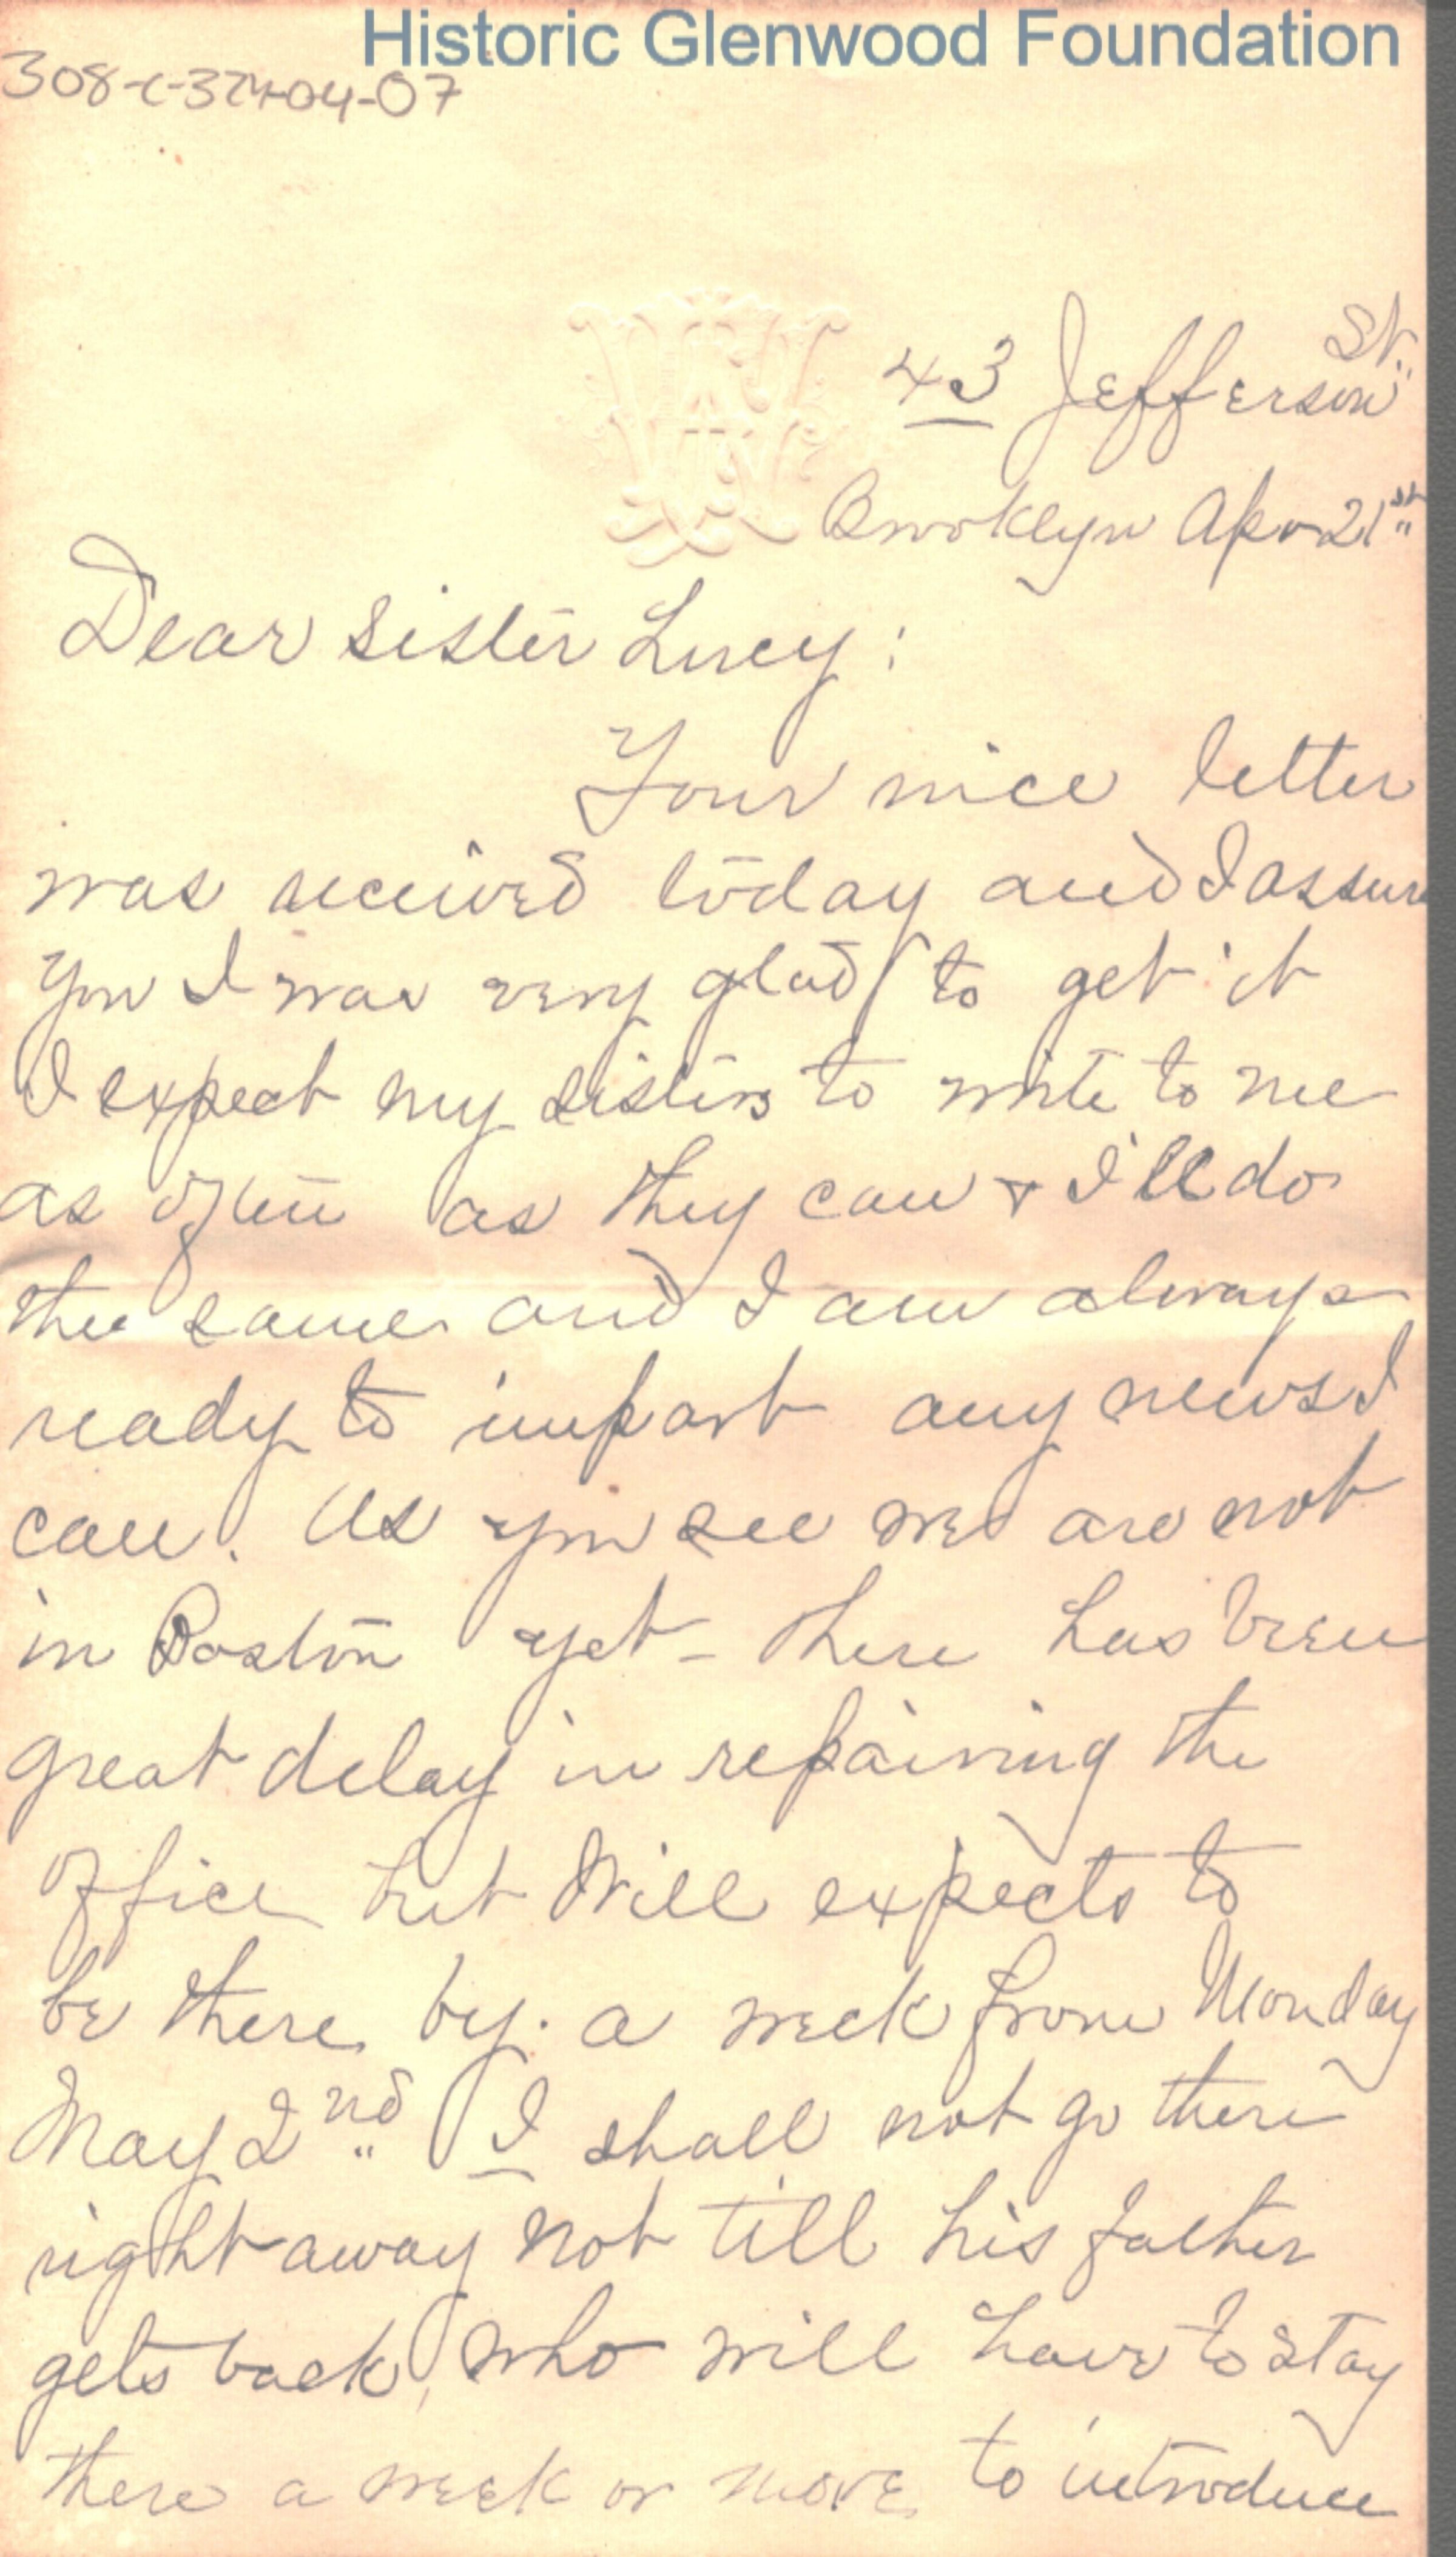 Historic Glenwood Foundation
308-C-3404-07
43 Jefferson St.
Brooklyn Apr 21st
Dear sister Lucy:
Your nice letter
was received today and I assure
you I was very glad to get it
I expect my sisters to write to me
as often as they can + I'll do
the same and I am always
ready to impart any news I
can. As you see we are not
in Boston yet - there has been
great delay in repairing the
office but Will expects to
be there by a week from Monday
May 2nd I shall not go there
right away not till his father
gets back, who will have to stay
there a week or more to introduce